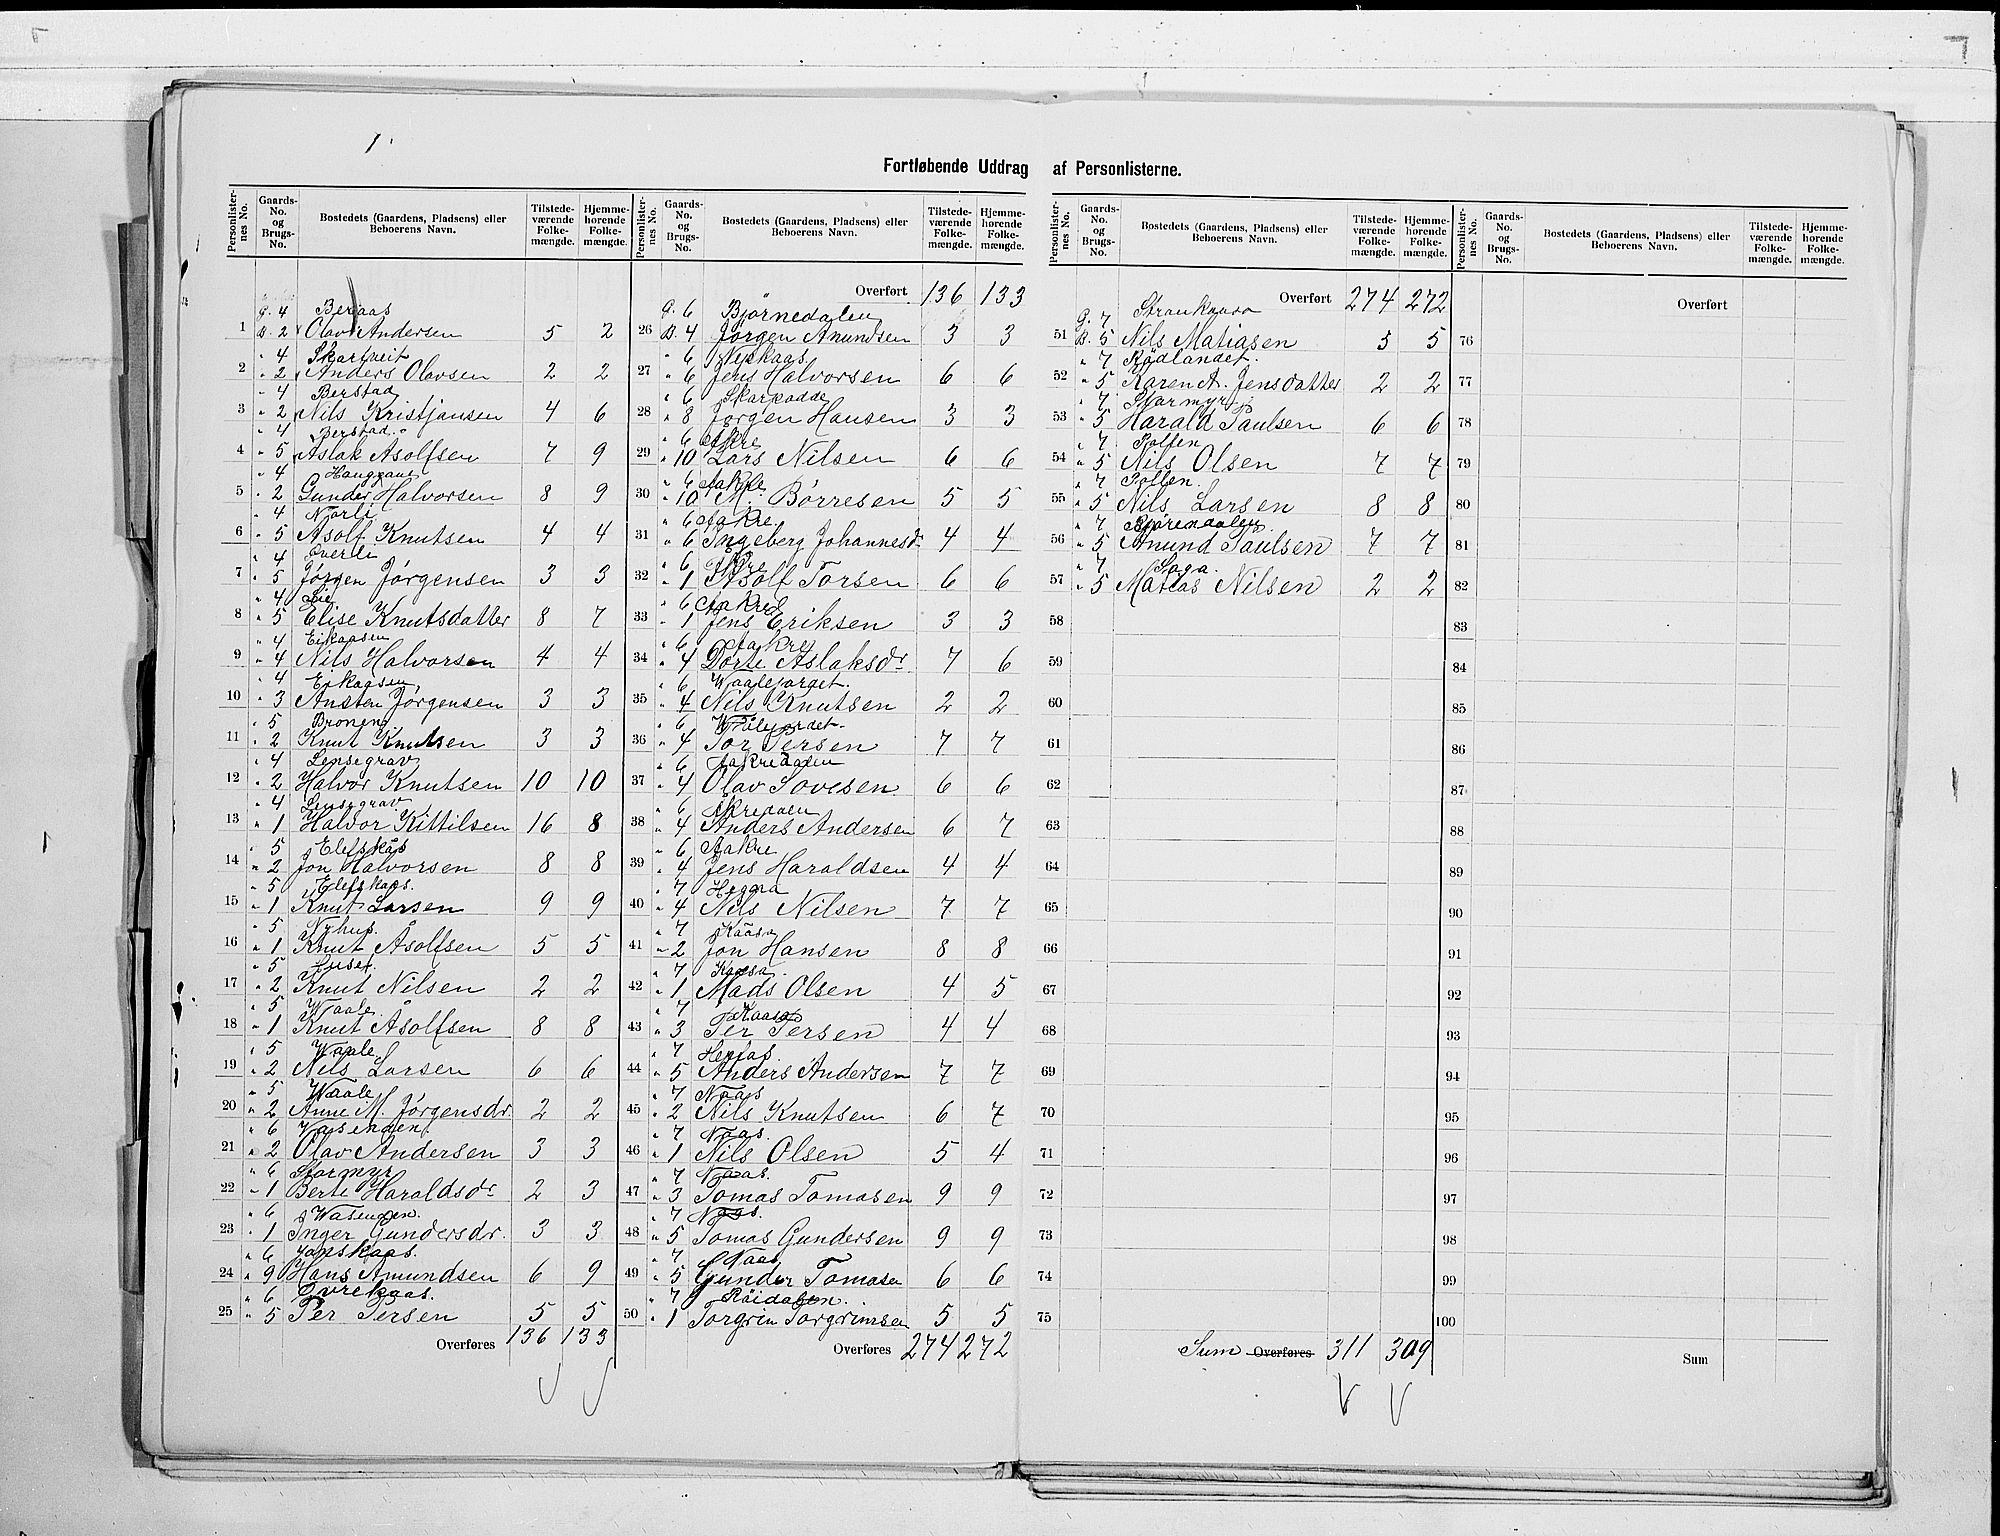 1.
Fortløbende Uddrag af Personlisterne.
Personlister-nes No. Gaards-No. og Brugs-No. Bostedets (Gaardens, Pladsens) eller Beboerens Navn. Tilstede-værende Folke-mængde. Hjemme-hørende Folke-mængde.
G. 4 Beraas
1 B. 2 Olav Andersen 5 2
" 4 Skartveit
2 " 2 Anders Olavsen 2 2
" 4 Berstad
3 " 2 Nils Kristjansen 4 6
" 4 Berstad
4 " 5 Aslak Asolfsen 7 9
" 4
5 " 2 Gunder Halvorsen 8 9
" 4 Norli
6 " 5 Asolf Knutsen 4 4
" 4 Overli
7 " 5 Jørgen Jørgensen 3 3
" 4 Lie
8 " 5 Elise Knutsdatter 8 7
" 4 Eikaasen
9 " 4 Nils Halvorsen 4 4
" 4 Eikaasen
10 " 3 Ansten Jørgensen 3 3
" 5 Bronen
11 " 2 Knut Knutsen 3 3
" 4 Lensegrav
12 " 2 Halvor Knutsen 10 10
" 4 Lensegrav
13 " 1 Halvor Kittilsen 16 8
" 5 Elefskås
14 " 2 Jon Halvorsen 8 8
" 5 Elefskaas.
15 " 1 Knut Larsen 9 9
" 5 Nyhus.
16 " 1 Knut Åsolfsen 5 5
" 5 Huset.
17 " 2 Knut Nilsen 2 2
" 5 Waale.
18 " 1 Knut Åsolfsen 8 8
" 5 Waale.
19 " 2 Nils Larsen 6 6
" 5 Waale
20 " 2 Anne M. Jørgensdr. 2 2
" 6 Vasenden
21 " 2 Olav Andersen 3 3
" 6 Stormyr
22 " 1 Berte Haraldsdr 2 3
" 6 Wasenden.
23 " 1 Inger Gundersdr. 3 3
" 6 Janskaas.
24 " 9 Hans Amundsen 6 9
" 6 Øvrekaas.
25 " 5 Per Persen 5 5
Overføres 136 133
Personlister-nes No. Gaards-No. og Brugs-No. Bostedets (Gaardens, Pladsens) eller Beboerens Navn. Tilstede-værende Folke-mængde. Hjemme-hørende Folke-mængde.
Overført 136 133
G. 6 Bjørnedalen
26 B. 4 Jørgen Anundsen 3 3
" 6 Nerkaas.
27 " 6 Jens Halvorsen 6 6
" 6 Skarkodde
28 " 8 Jørgen Hansen 3 3
" 6 Åkre
29 " 10 Lars Nilsen 6 6
" 6 Aakre
30 " 10 M. Børresen 5 5
" 6 Aakre
31 " 6 Ingeberg Johannesd. 4 4
" 6 Åkre
32 " 1 Asolf Torsen 6 6
" 6 Aakre
33 " 1 Jens Eriksen 3 3
" 6 Aakre
34 " 4 Dorte Aslaksdr 7 6
" 6 Waaletorget.
35 " 4 Nils Knutsen 2 2
" 6
36 " 4 Tor Persen 7 7
" 6 Aakredalen
37 " 4 Olav Sovesen 6 6
" 6 Åkredalen
38 " 4 Anders Andersen 6 7
" 6 Aakre
39 " 4 Jens Haraldsen 4 4
" 7 Hegna
40 " 4 Nils Nilsen 7 7
" 7 Kaasa
41 " 2 Jon Hansen 8 8
" 7 Kaasa.
42 " 1 Mads Olsen 4 5
" 7 Kaasa
43 " 3 Per Persen 4 4
" 7
44 " 5 Anders Andersen 7 7
" 7 Naas
45 " 2 Nils Knutsen 6 7
" 7 Naas.
46 " 1 Nils Olsen 5 4
" 7 Naas.
47 " 3 Tomas Tomasen 9 9
" 7 Naas.
48 " 5 Tomas Gundersen 9 9
" 7 Naas
49 " 5 Gunder Tomasen 6 6
" 7 Røidalen.
50 " 1 Torgrim Torgrimsen 5 5
Overføres 274 272
Personlister-nes No. Gaards-No. og Brugs-No. Bostedets (Gaardens, Pladsens) eller Beboerens Navn. Tilstede-værende Folke-mængde. Hjemme-hørende Folke-mængde.
Overført 274 272
G. 7
51 B. 5 Nils Matiasen 5 5
" 7 Rödlandet.
52 " 5 Karen A. Jensdatter 2 2
" 7 Stormyr
53 " 5 Harald Paulsen 6 6
" 7 Pollen
54 " 5 Nils Olsen 7 7
" 7 Pollen.
55 " 5 Nils Larsen 8 8
" 7 Bjørendalen
56 " 5 Anund Paulsen 7 7
" 7 Saga.
57 " 5 Matias Nilsen 2 2
58
59
60
61
62
63
64
65
66
67
68
69
70
71
72
73
74
75
Sum Overføres 311 309
Personlister-nes No. Gaards-No. og Brugs-No. Bostedets (Gaardens, Pladsens) eller Beboerens Navn. Tilstede-værende Folke-mængde. Hjemme-hørende Folke-mængde.
Overført
76
77
78
79
80
81
82
83
84
85
86
87
88
89
90
91
92
93
94
95
96
97
98
99
100
Sum